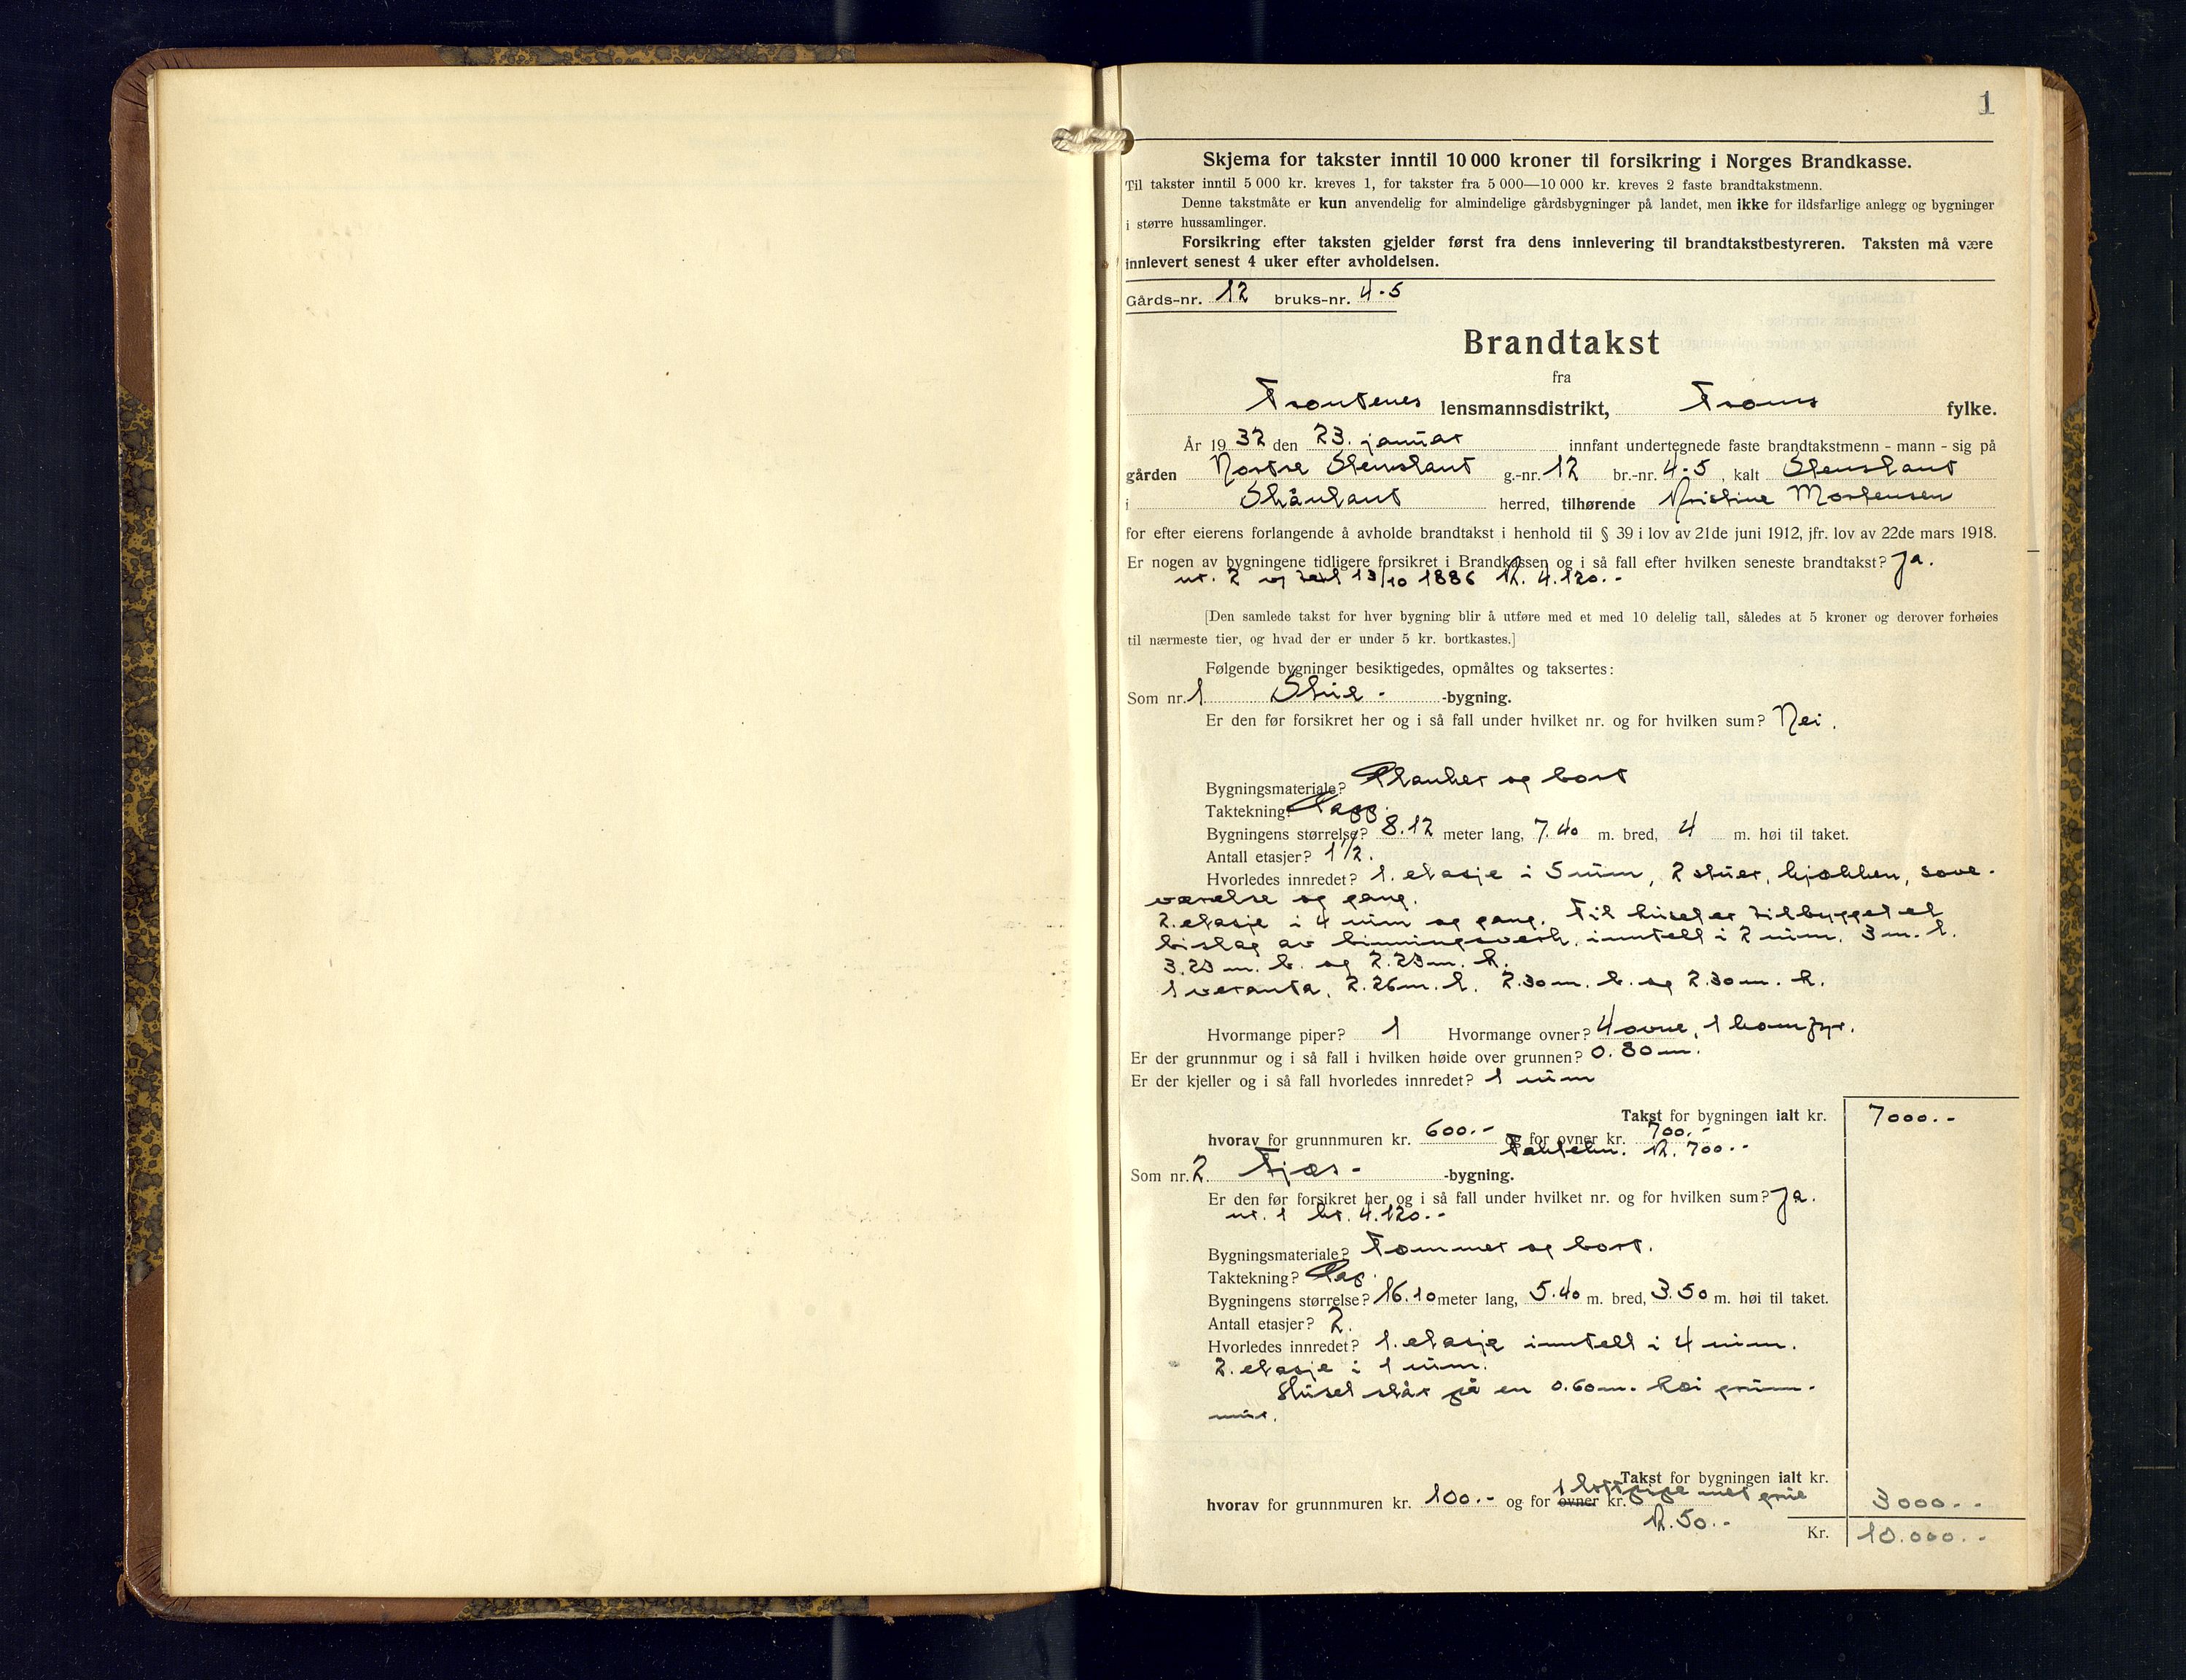 1
Skjema for takster inntil 10 000 kroner til forsikring i Norges Brandkasse.
Til takster inntil 5 000 kr. kreves 1, for takster fra 5 000—10 000 kr. kreves 2 faste brandtakstmenn.
Denne takstmåte er kun anvendelig for almindelige gårdsbygninger på landet, men ikke for ildsfarlige anlegg og bygninger
i større hussamlinger.
Forsikring efter taksten gjelder først fra dens innlevering til brandtakstbestyreren. Taksten må være
innlevert senest 4 uker efter avholdelsen.
Gårds-nr. 12 bruks-nr. 4-5
Brandtakst
fra
Trondenes lensmannsdistrikt, Troms fylke.
År 1932 den 23. januar innfant undertegnede faste brandtakstmenn - mann - sig på
gården Nordre Stensland g.-nr. 12 br.-nr. 4-5, kalt Stensland
i Skånland herred, tilhørende Kristine Mortensen
for efter eierens forlangende å avholde brandtakst i henhold til § 39 i lov av 21de juni 1912, jfr. lov av 22de mars 1918.
Er nogen av bygningene tidligere forsikret i Brandkassen og i så fall efter hvilken seneste brandtakst? Ja.
nr. 2 13/10 1886 K. 4.120.-
[Den samlede takst for hver bygning blir å utføre med et med 10 delelig tall, således at 5 kroner og derover forhøies
til nærmeste tier, og hvad der er under 5 kr. bortkastes.]
Følgende bygninger besiktigedes, opmåltes og taksertes:
Som nr. 1 Stue- -bygning.
Er den før forsikret her og i så fall under hvilket nr. og for hvilken sum? Nei.
Bygningsmateriale? Planker og bord
Taktekning? Papp.
Bygningens størrelse? 8.12 meter lang, 7.40 m. bred, 4 m. høi til taket.
Antall etasjer? 1 1/2.
Hvorledes innredet? 1. etasje i 5 rum, 2 stuer, kjøkken, sove-
værelse og gang.
2. etasje i 4 rum og gang. Til huset er tilbygget et
bislag av binningsverk, inndelt i 2 rum. 3 m. l.
3.23 m. b. og 2.23 m. h.
1 veranda, 2.26 m. l. 2.30 m. b. og 2.30 m. h.
Hvormange piper? 1 Hvormange ovner? 4 ovne, 1 komfyr.
Er der grunnmur og i så fall i hvilken høide over grunnen? 0.80 m.
Er der kjeller og i så fall hvorledes innredet? 1 rum
Takst for bygningen ialt kr. 7000.-
hvorav for grunnmuren kr. 600.- og for ovner kr. 700.-
Taktekn. K. 700.-
Som nr. 2. Fjøs- -bygning.
Er den før forsikret her og i så fall under hvilket nr. og for hvilken sum? Ja.
nr. 1 kr. 4.120.-
Bygningsmateriale? Tømmer og bord.
Taktekning? Pap.
Bygningens størrelse? 16.10 meter lang, 5.40 m. bred, 3.50 m. høi til taket.
Antall etasjer? 2.
Hvorledes innredet? 1. etasje inndelt i 4 rum.
2. etasje i 1 rum.
Huset står på en 0.60 m. høi grunn-
mur.
Takst for bygningen ialt kr.
hvorav for grunnmuren kr. 100.- og for ovner kr. 1 loftpipe med grue 3000.-
K. 50.-
Kr. 10.000.-